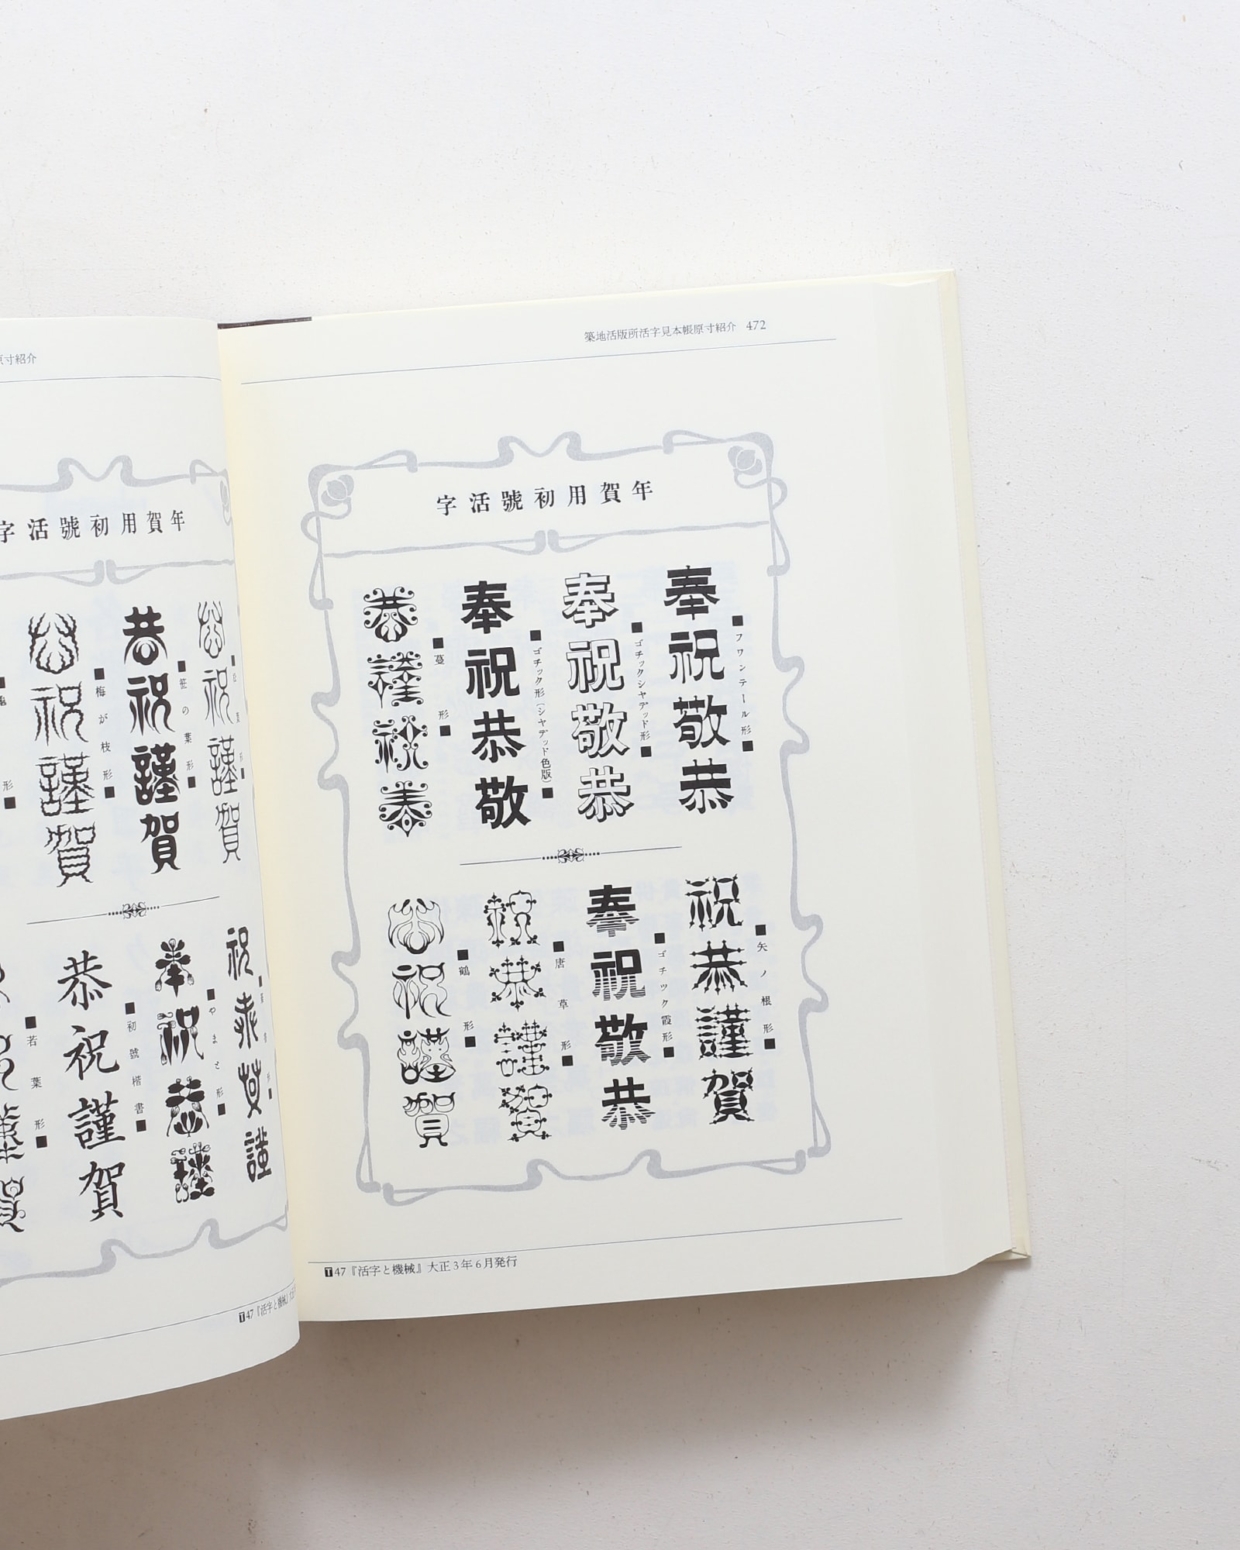 築地活版所活字見本帳原寸紹介 472
字活號初用賀年
奉祝敬恭
■フワンテール形■
奉祝敬恭
■ゴチックシヤデッド形■
奉祝恭敬
■ゴチック形(シヤデッド色版)■
恭謹祝奉
■蔓形■
祝恭謹賀
■矢ノ根形■
奉祝敬恭
■ゴチック霞形■
祝恭謹賀
■唐草形■
恭祝謹賀
■鶴形■
T47『活字と機械』大正3年6月発行
寸紹介
字活號初用賀年
恭祝謹賀
恭祝謹賀
■笹の葉形■
恭祝謹賀
■梅が枝形■
形■
祝恭賀謹
奉祝恭謹
■やまと形■
恭祝謹賀
■初號楷書■
■若葉形■
T47『活字と機械』